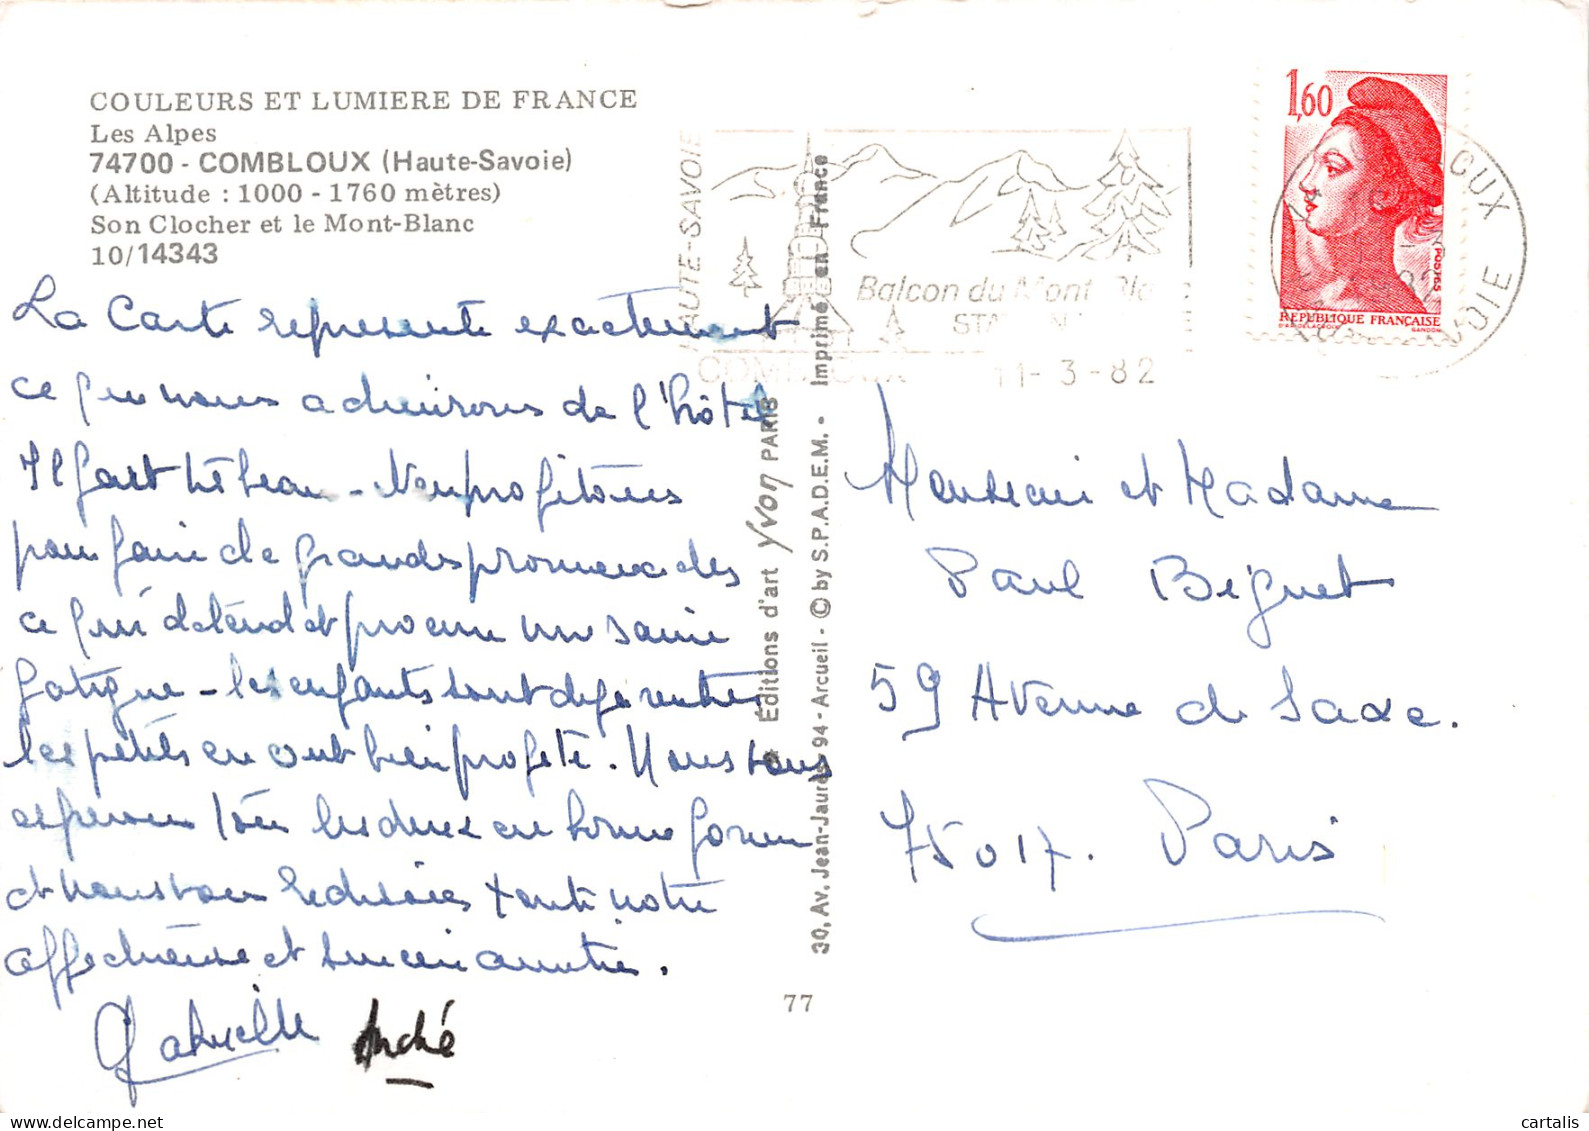 COULEURS ET LUMIERE DE FRANCE
Les Alpes
74700 - COMBLOUX (Haute-Savoie)
(Altitude : 1000 - 1760 mètres)
Son Clocher et le Mont-Blanc
10/14343
La Carte represente exactement
ce que nous admirons de l'hôtel
Il fait très beau - Nous profitons
pour faire de grandes promenades
ce qui détend et procure une saine
fatigue - les enfants sont deja rentrés
les petits en ont bien profité. Nous vous
esperons tous les deux en bonne forme
et nous vous redisons toute notre
affectueuse et sincère amitié.
Gabrielle André
HAUTE-SAVOIE
Balcon du Mont Blanc
COMBLOUX 11-3-82
Editions d'art Yvon PARIS
30, Av. Jean-Jaurès 94 - Arcueil - © by S.P.A.D.E.M. - Imprimé en France
77
1,60
POSTES
REPUBLIQUE FRANÇAISE
D'AP. DELACROIX GANDON
Monsieur et Madame
Paul Béguet
59 Avenue de Saxe.
75017. Paris
cartalis
delcampe.net